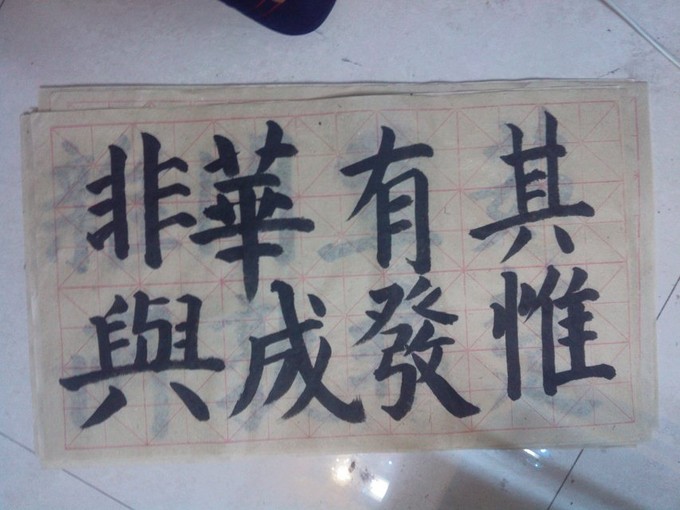 其惟
有發
華成
非與